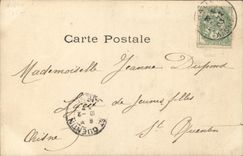 Carte Postale
Mademoiselle Jeanne Dupond
Lycée de Jeunes filles
St Quentin
Aisne
ST QUENTIN